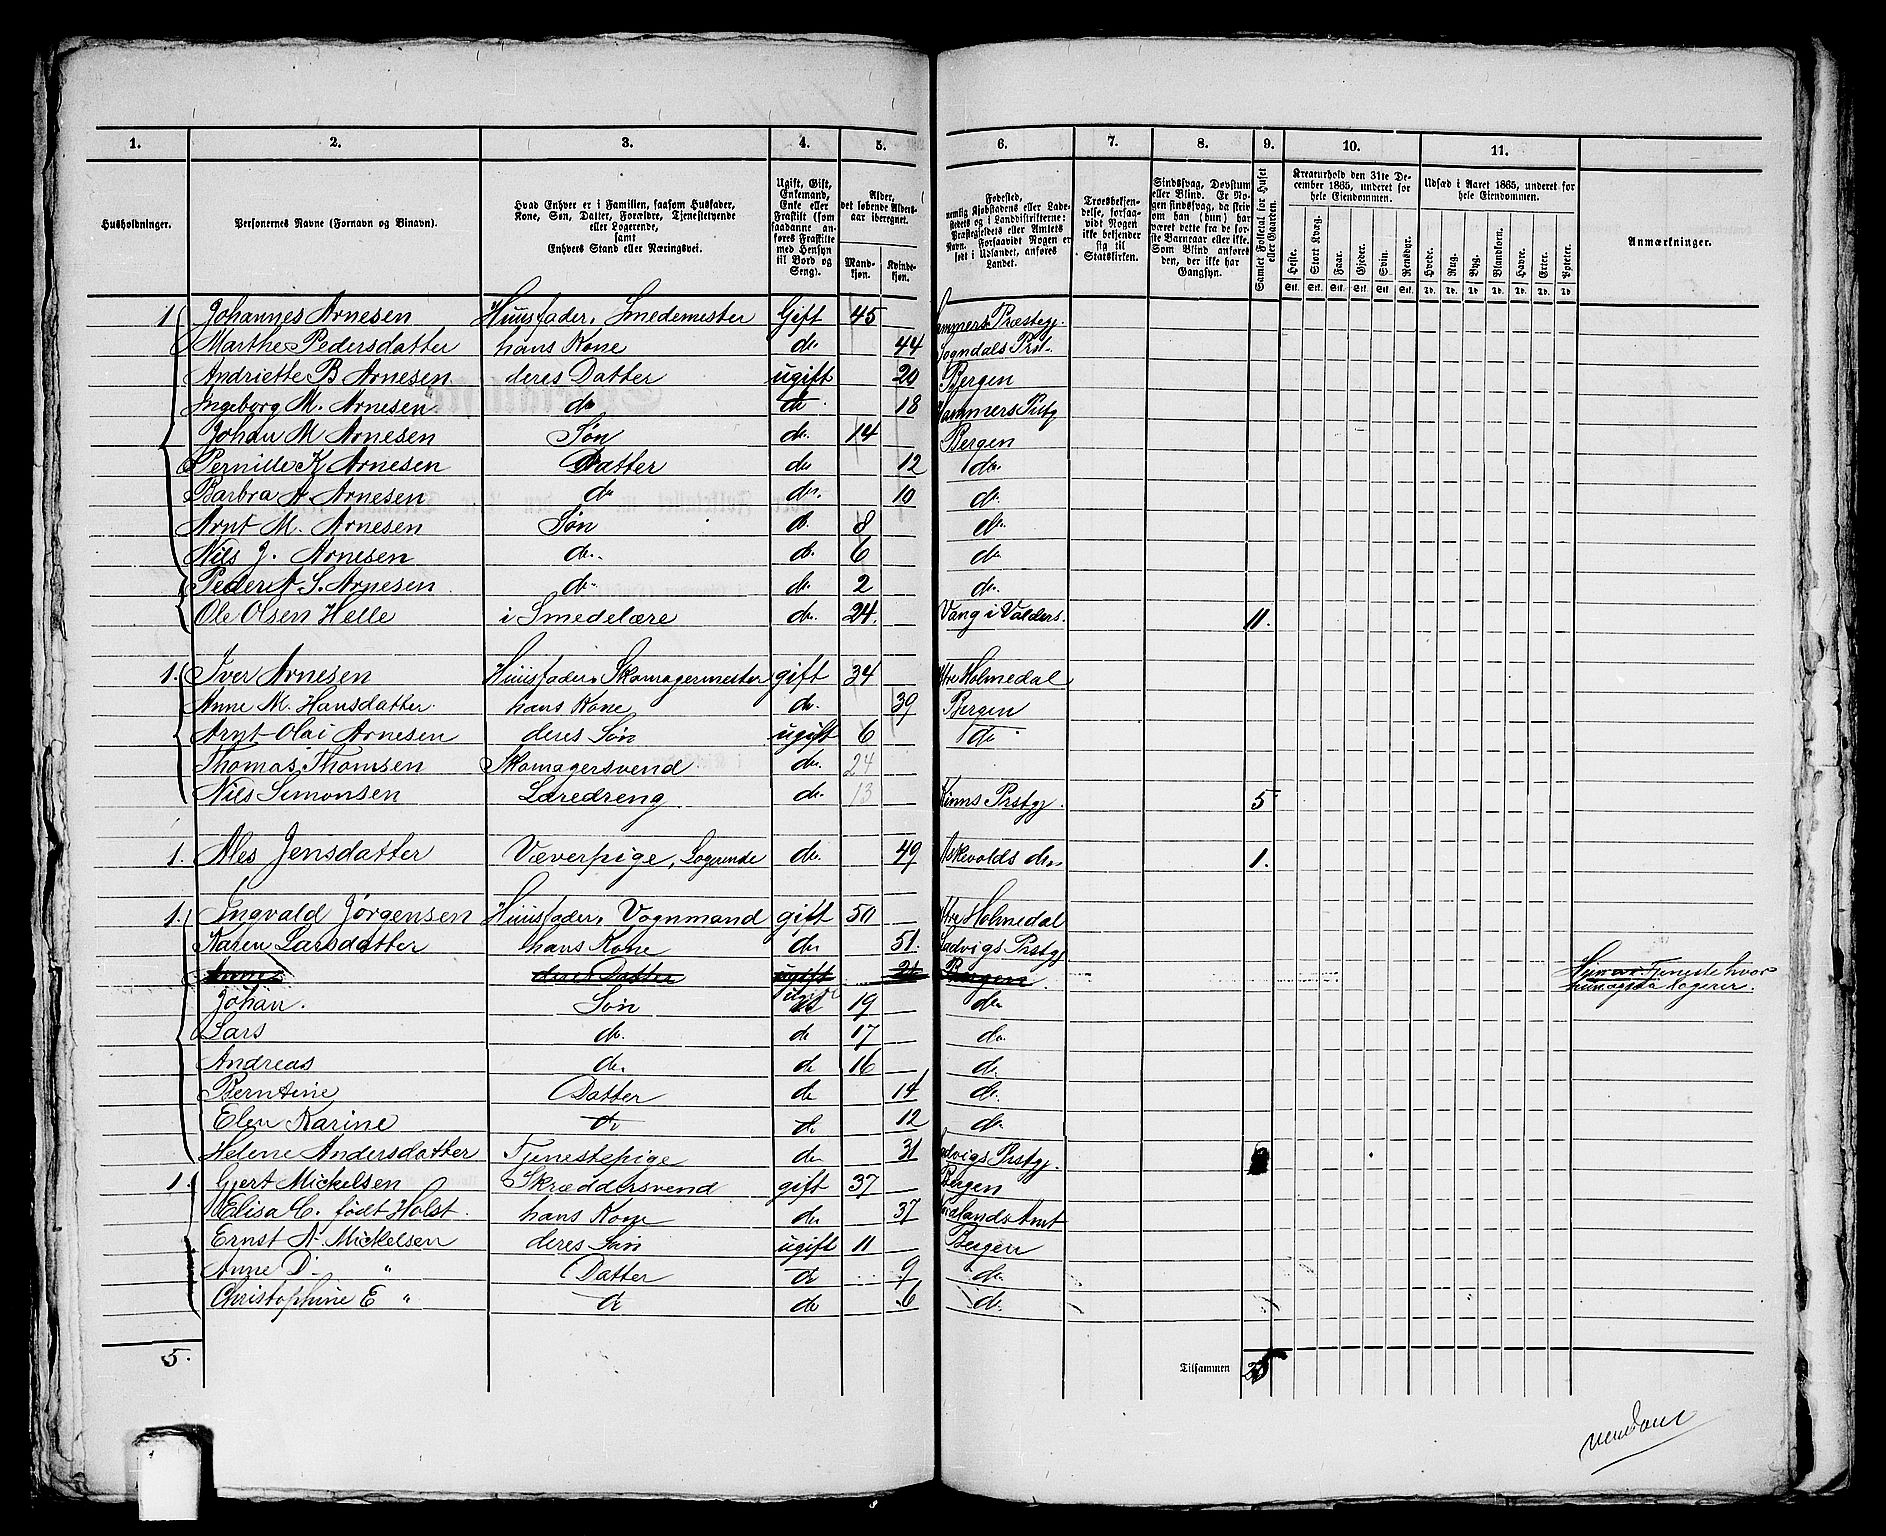 1. 2. 3. 4. 5. 6. 7. 8. 9. 10. 11.
Husholdninger.
Personernes Navne (Fornavn og Binavn).
Hvad Enhver er i Familien, saasom Husfader, Kone, Søn, Datter, Forældre, Tjenestetyende eller Logerende, samt Enhvers Stand eller Næringsvei.
Ugift, Gift, Enkemand, Enke eller Fraskilt (som saadanne anføres Fraskilte med Hensyn til Bord og Seng).
Alder, det løbende Aldersaar iberegnet.
Mandkjøn. Kvindekjøn.
Fødested,
nemlig Kjøbstadens eller Ladestedets og i Landdistrikterne: Præstegjeldets eller Amtets Navn. Forsaavidt Nogen er født i Udlandet, anføres Landet.
Troesbekjendelse, forsaavidt Nogen ikke bekjender sig til Statskirken.
Sindssvag, Døvstum eller Blind. Er Nogen sindssvag, da skriv om han (hun) har været dette fra de første Barneaar eller ikke. Som Blind anføres den, der ikke har Gangsyn.
Samlet Folketal for Huset eller Gaarden.
Kreaturhold den 31te December 1865, underet for hele Eiendommen.
Heste. Stort Kvæg. Faar. Gjeder. Svin. Rensdyr.
Stk. Stk. Stk. Stk. Stk. Stk.
Udsæd i Aaret 1865, underet for hele Eiendommen.
Hvede. Rug. Byg. Blandkorn. Havre. Erter. Poteter.
Td. Td. Td. Td. Td. Td. Td.
Anmærkninger.
1 Johannes Arnesen Huusfader, Smedemester Gift 45 Hammers Præstegj.
Marthe Pedersdatter hans Kone do 44 Sogndals Prst.
Andriette B Arnesen deres Datter ugift 20 Bergen
Ingeborg M. Arnesen. do do 18 Hammers Prstg
Johan M Arnesen Søn do. 14 Bergen
Pernille K Arnesen Datter do 12 do.
Barbra A. Arnesen do do. 10 do.
Arnt M. Arnesen Søn do. 8 do.
Nils J. Arnesen do. do. 6 do
Peder A S. Arnesen do. do. 2 do.
Ole Olsen Helle i Smedelære do. 24. Vang i Valders. 11.
1. Iver Arnesen Huusfader, Skomagermester gift 34 Ytre Holmedal
Anne M. Hansdatter. hans Kone do. 39 Bergen
Arnt Olai Arnesen deres Søn ugift 6 do
Thomas Thomsen Skomagersvend do. 24
Nils Simonsen Læredreng do. 13 Kinns Prstgj. 5
1. Ales Jensdatter Væverpige, Logerende do. 49 Askevolds do. 1.
1. Ingvald Jørgensen Huusfader, Vognmand gift 50 Ytre Holmedal
Karen Larsdatter hans Kone do 51. Ladvigs Prstgj
Anne deres Datter ugift 21 Bergen Hun er i Tjeneste hvor hun ogsaa logerer.
Johan. Søn ugift 19 do
Lars do. do 17 do.
Andreas do. do 16 do.
Berntine Datter do 14 do.
Elen Karine do do 12 do.
Helene Andersdatter Tjenestepige do 31 Ladvigs Prstgj.
1. Gjert Mickelsen Skræddersvend gift 37 Bergen
Elisa C. født Holst. hans Kone do 37 Nordlands Amt
Ernst A. Mickelsen deres Søn ugift 11 Bergen
Anne D. " Datter do 9 do.
Christophine E " do do 6 do.
5. Tilsammen